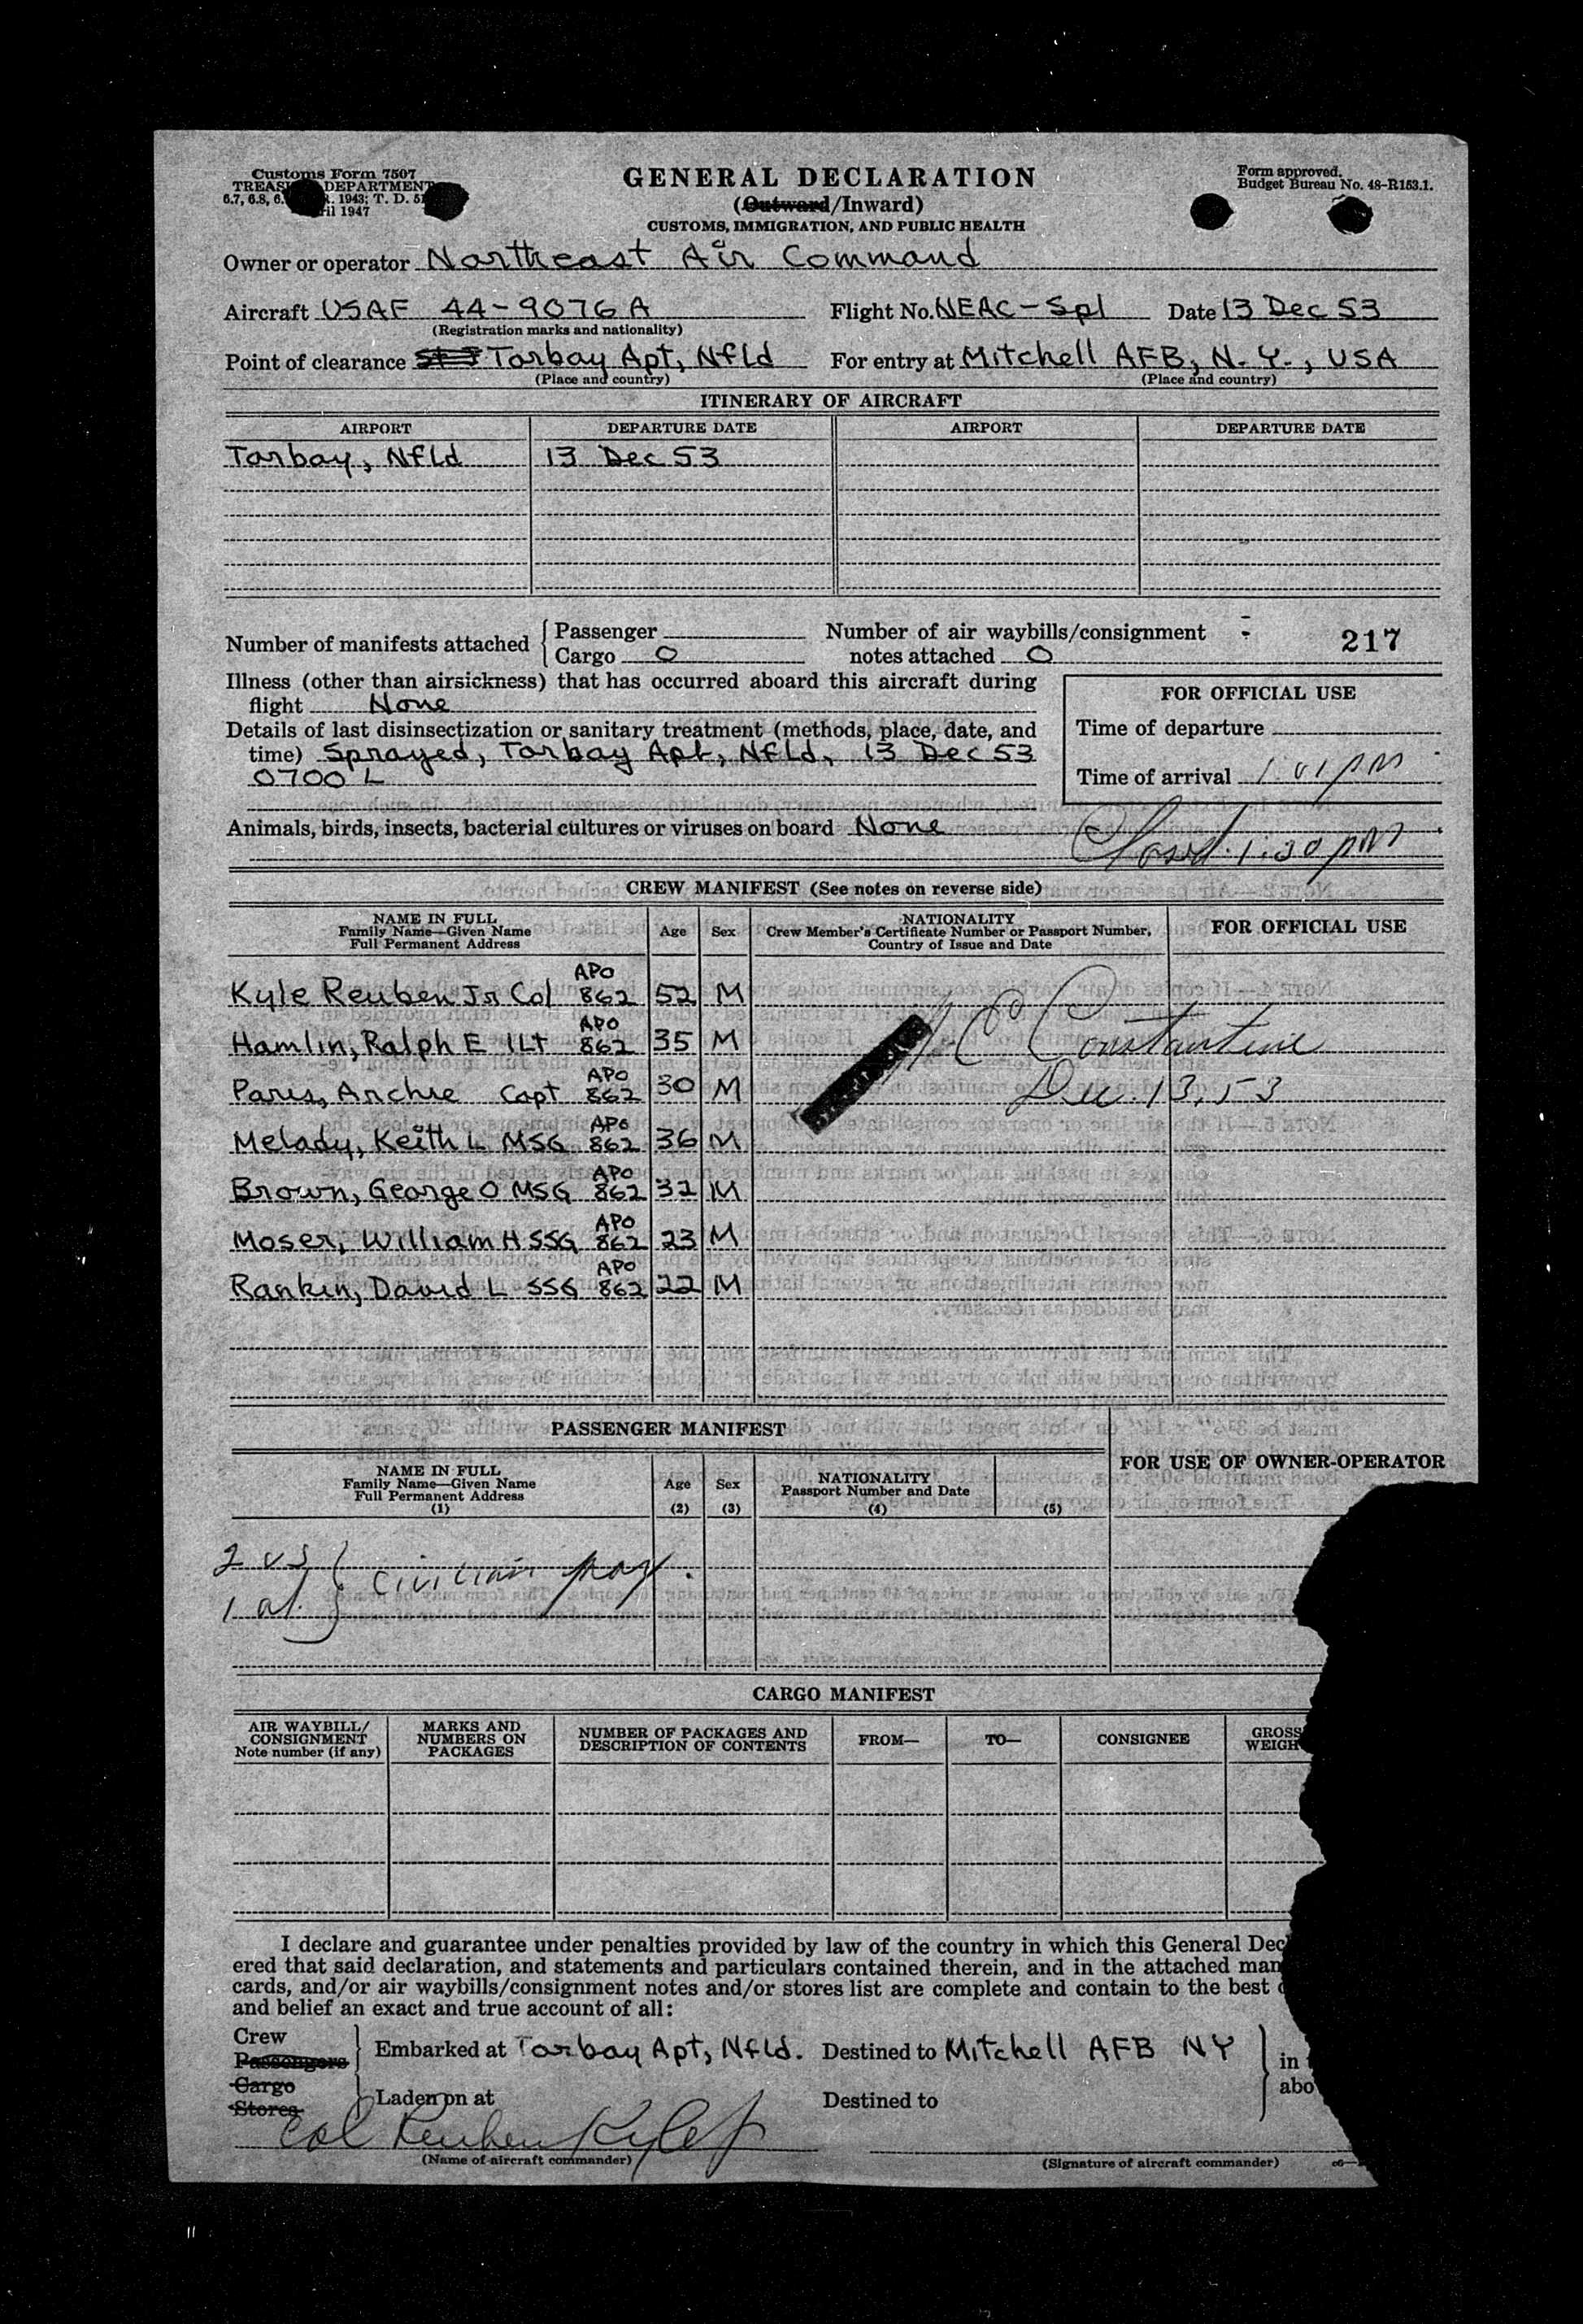 Customs Form 7507
TREAS DEPARTMENT
6.7, 6.8, 6. 1943; T. D. 51
il 1947
GENERAL DECLARATION
(Outward/Inward)
CUSTOMS, IMMIGRATION, AND PUBLIC HEALTH
Form approved.
Budget Bureau No. 48-R153.1.
Owner or operator Northeast Air Command
Aircraft USAF 44-9076A Flight No. NEAC-Spl Date 13 Dec 53
(Registration marks and nationality)
Point of clearance Torbay Apt, Nfld For entry at Mitchell AFB, N.Y., USA
(Place and country) (Place and country)
ITINERARY OF AIRCRAFT
AIRPORT DEPARTURE DATE AIRPORT DEPARTURE DATE
Torbay, Nfld 13 Dec 53
Number of manifests attached { Passenger Number of air waybills/consignment 217
Cargo 0 notes attached 0
Illness (other than airsickness) that has occurred aboard this aircraft during
flight None
FOR OFFICIAL USE
Details of last disinsectization or sanitary treatment (methods, place, date, and
time) Sprayed, Torbay Apt, Nfld, 13 Dec 53
0700 L
Time of departure
Time of arrival 1:01 pm
Animals, birds, insects, bacterial cultures or viruses on board None
1:30 pm
CREW MANIFEST (See notes on reverse side)
NAME IN FULL Age Sex NATIONALITY FOR OFFICIAL USE
Family Name—Given Name Crew Member's Certificate Number or Passport Number,
Full Permanent Address Country of Issue and Date
Kyle Reuben Jr Col APO 862 52 M
Hamlin, Ralph E 1Lt APO 862 35 M
Paris, Archie Capt APO 862 30 M
Melady, Keith L MSG APO 862 36 M
Brown, George O MSG APO 862 32 M
Moser, William H SSG APO 862 23 M
Rankin, David L SSG APO 862 22 M
C Constantine
Dec. 13, 53
PASSENGER MANIFEST
FOR USE OF OWNER-OPERATOR
NAME IN FULL Age Sex NATIONALITY
Family Name—Given Name Passport Number and Date
Full Permanent Address
(1) (2) (3) (4) (5)
2 US } civilian
1 al.
CARGO MANIFEST
AIR WAYBILL/ MARKS AND NUMBER OF PACKAGES AND FROM— TO— CONSIGNEE GROSS
CONSIGNMENT NUMBERS ON DESCRIPTION OF CONTENTS WEIGH
Note number (if any) PACKAGES
I declare and guarantee under penalties provided by law of the country in which this General Dec
ered that said declaration, and statements and particulars contained therein, and in the attached man
cards, and/or air waybills/consignment notes and/or stores list are complete and contain to the best
and belief an exact and true account of all:
Crew
Passengers
Embarked at Torbay Apt, Nfld. Destined to Mitchell AFB NY } in
abo
Cargo
Stores
Laden on at Destined to
Col Reuben Kyle Jr
(Name of aircraft commander) (Signature of aircraft commander)